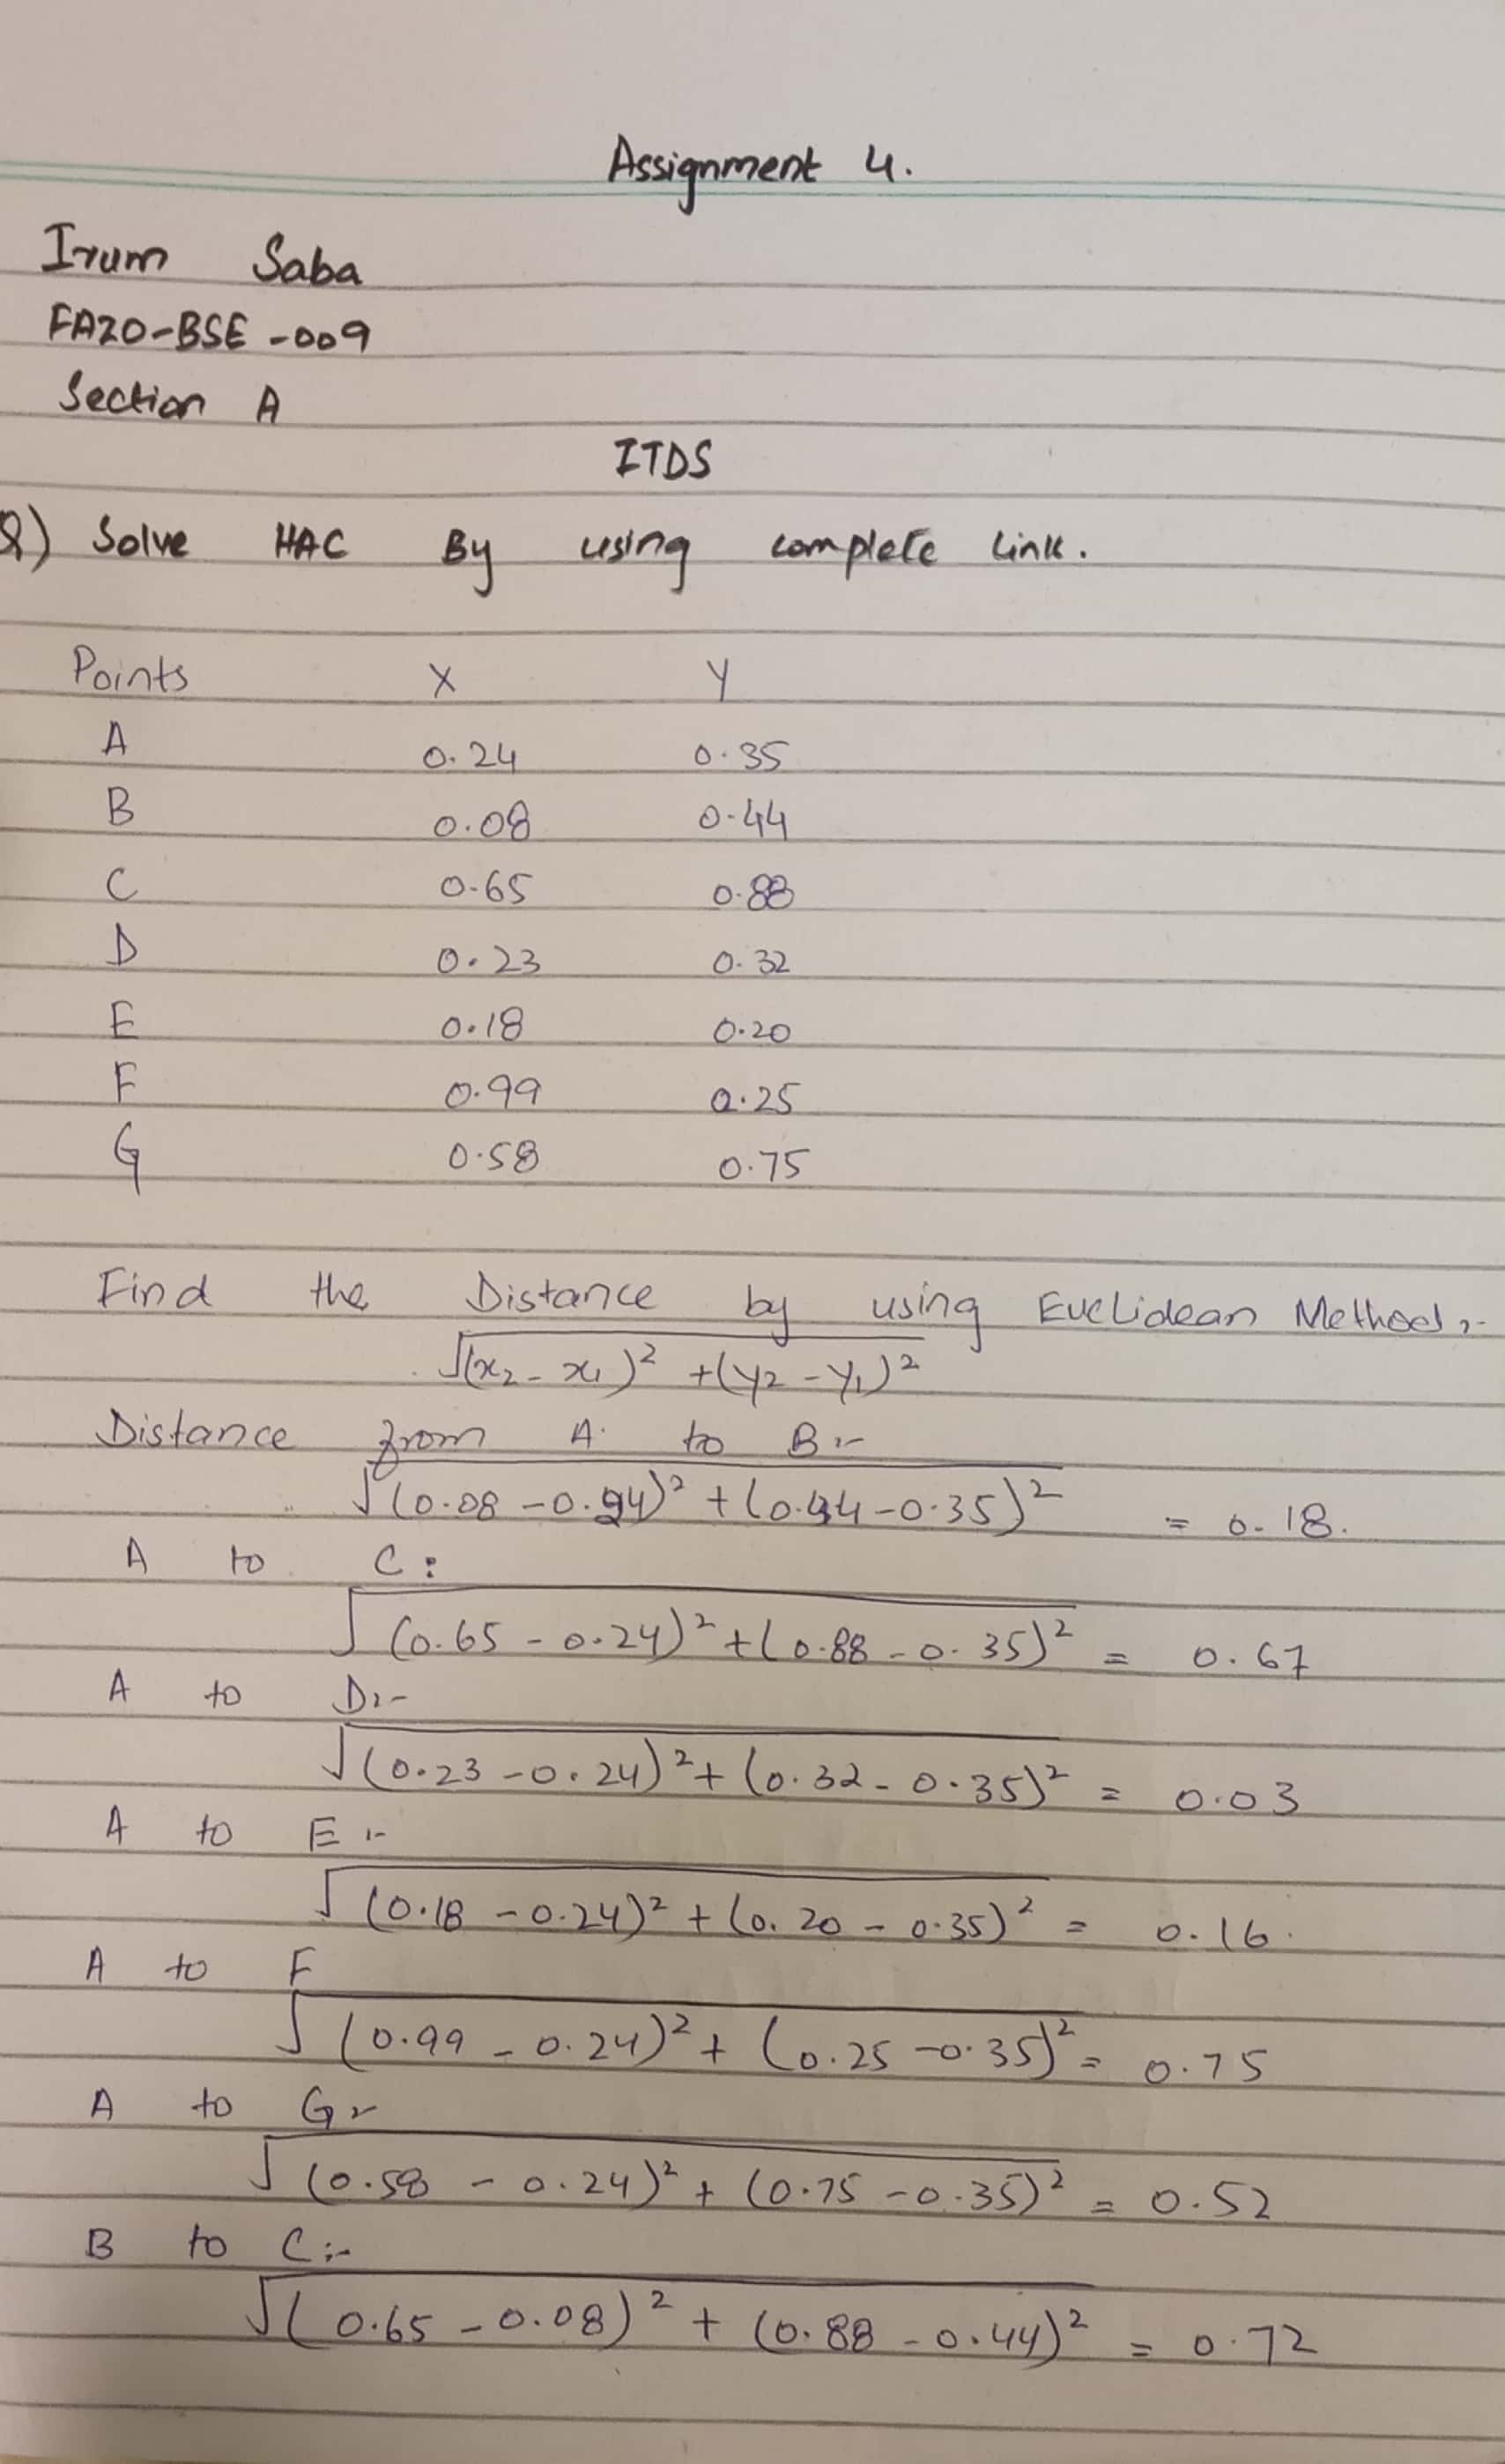 Assignment 4.
Irum Saba
FA20-BSE-009
Section A
ITDS
Q) Solve HAC By using complete link.
Points X Y
A 0.24 0.35
B 0.08 0.44
C 0.65 0.88
D 0.23 0.32
E 0.18 0.20
F 0.99 0.25
G 0.58 0.75
Find the Distance by using Euclidean Method:-
√(x₂ - x₁)² + (y₂ - y₁)²
Distance from A to B:-
√(0.08 - 0.24)² + (0.44 - 0.35)² = 0.18.
A to C:
√(0.65 - 0.24)² + (0.88 - 0.35)² = 0.67
A to D:-
√(0.23 - 0.24)² + (0.32 - 0.35)² = 0.03
A to E:-
√(0.18 - 0.24)² + (0.20 - 0.35)² = 0.16.
A to F
√(0.99 - 0.24)² + (0.25 - 0.35)² = 0.75
A to G:-
√(0.58 - 0.24)² + (0.75 - 0.35)² = 0.52
B to C:-
√(0.65 - 0.08)² + (0.88 - 0.44)² = 0.72